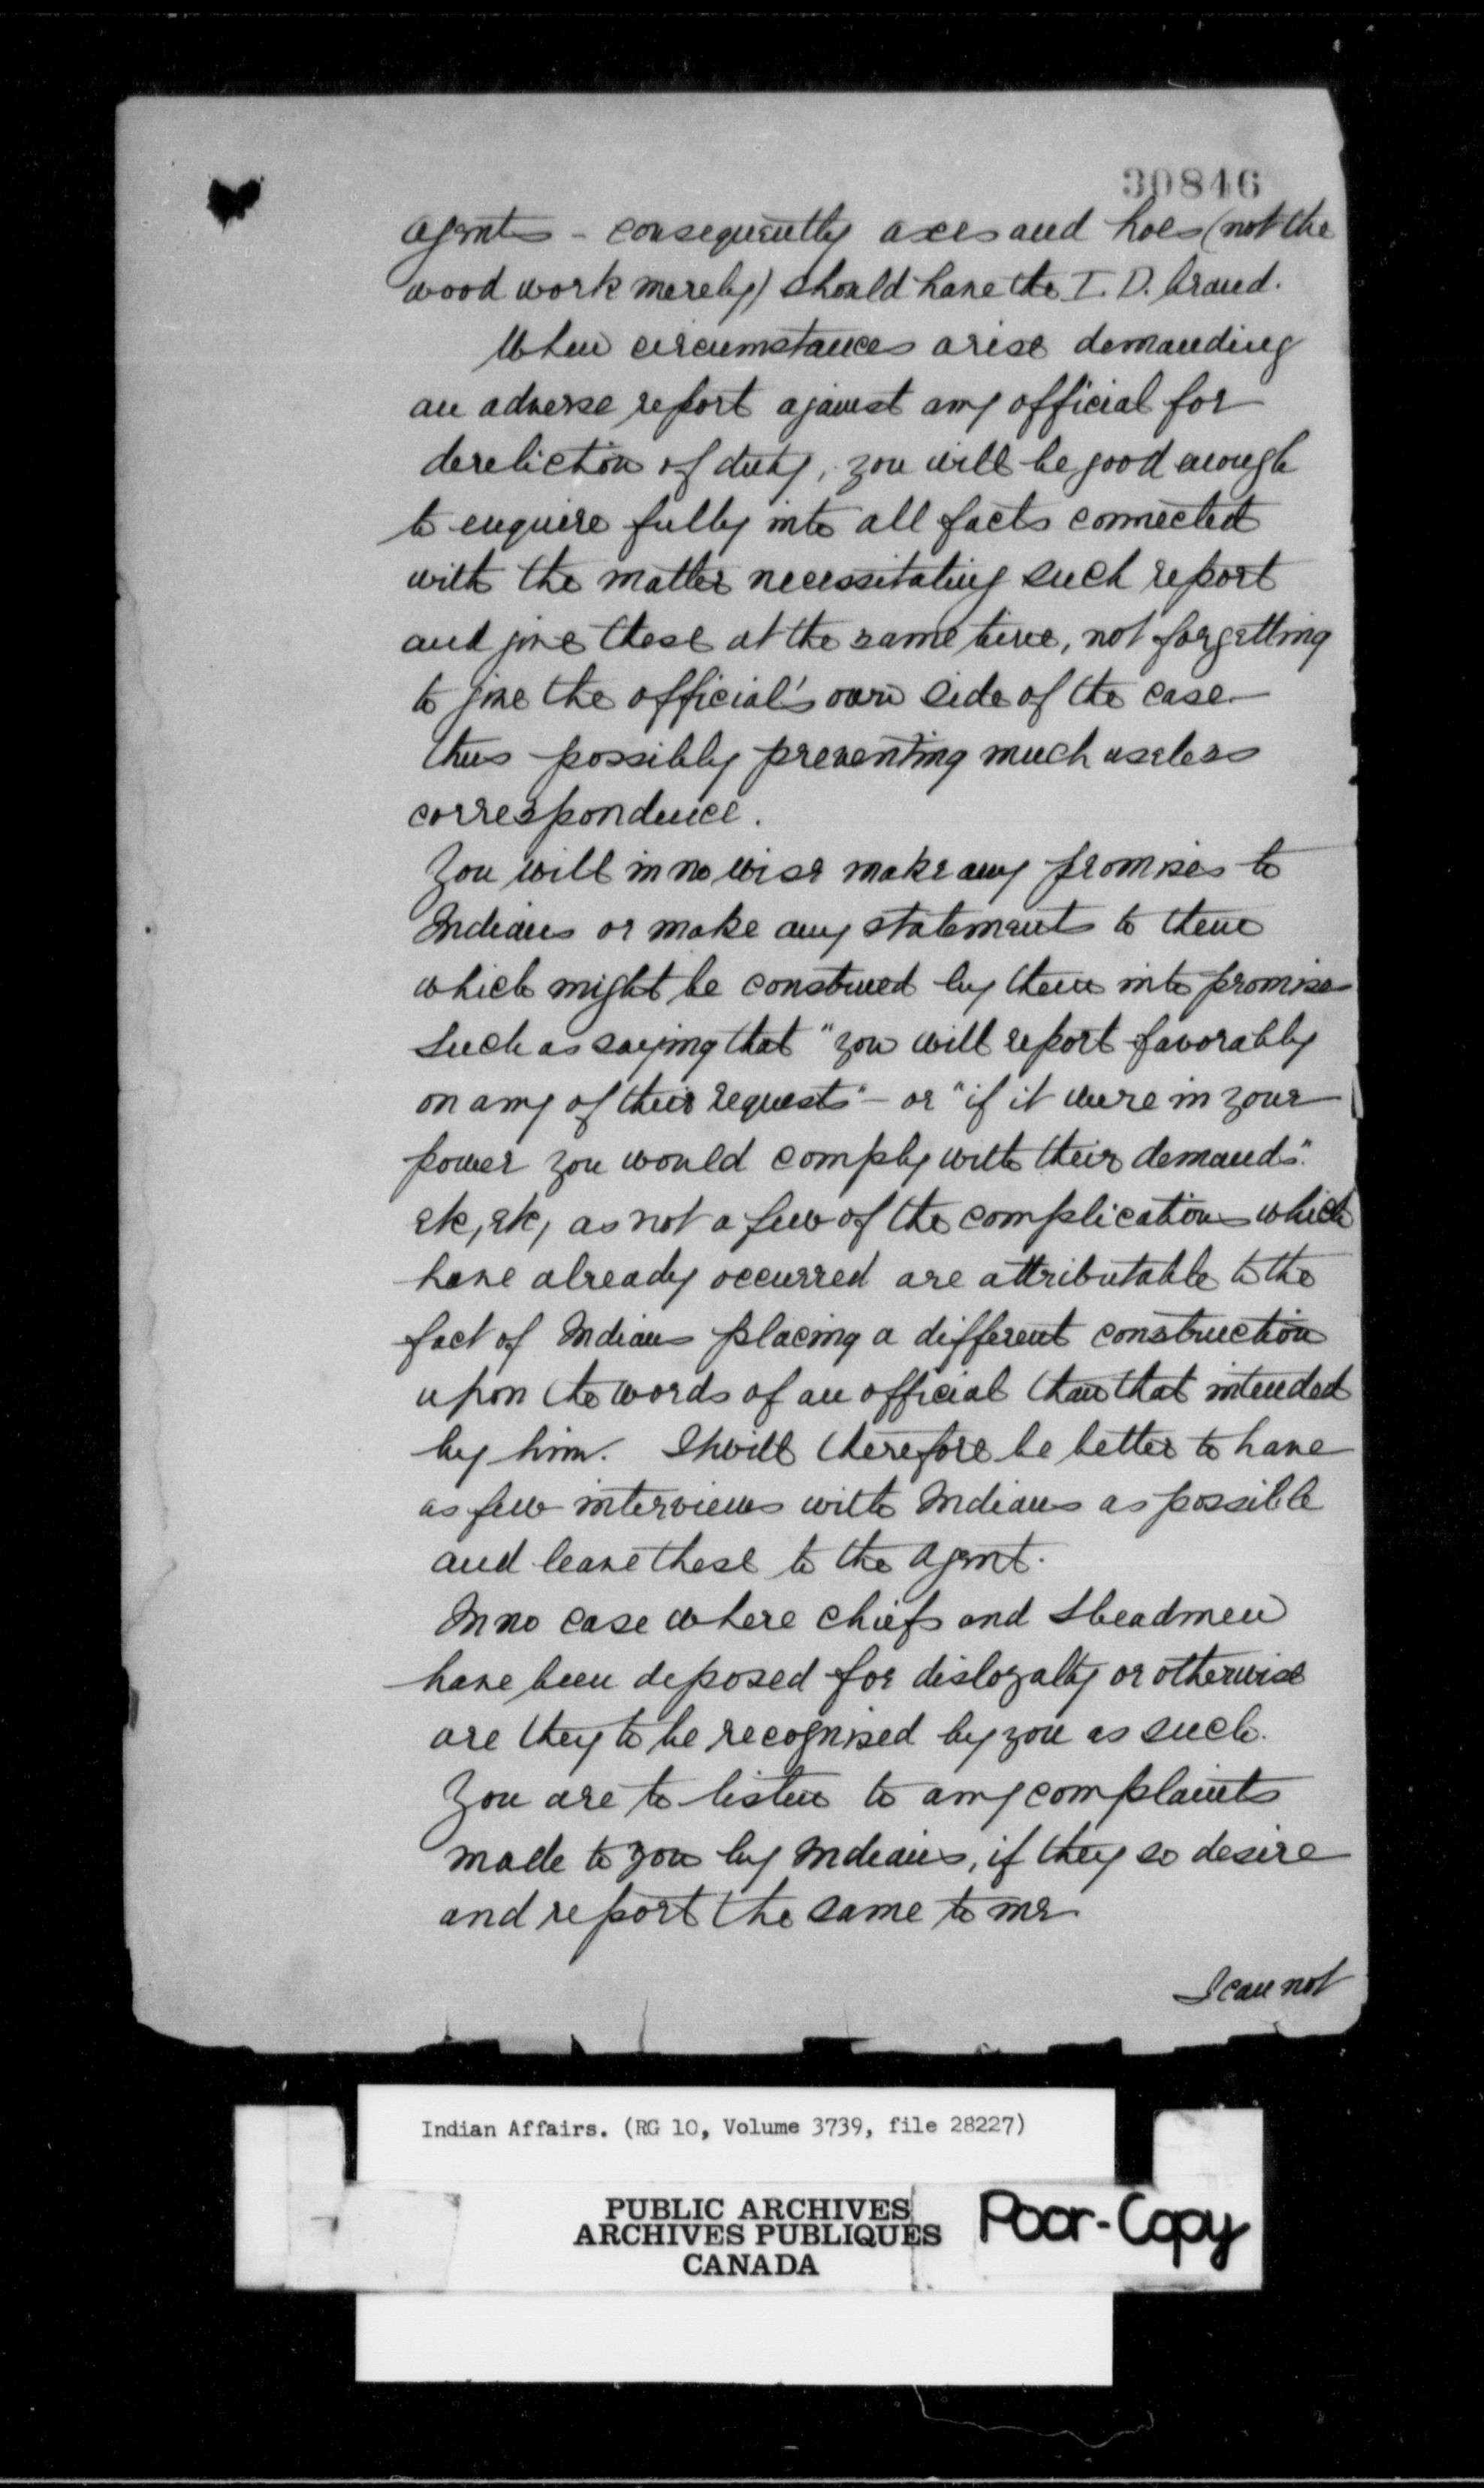 30846
agents - consequently axes and hoes (not the
wood work merely) should have the I. D. brand.
When circumstances arise demanding
an adverse report against any official for
dereliction of duty, you will be good enough
to enquire fully into all facts connected
with the matter necessitating such report
and give these at the same time, not forgetting
to give the official's own side of the case -
thus possibly preventing much useless
correspondence.
You will in no wise make any promises to
Indians or make any statements to them
which might be construed by them into promises
such as saying that "you will report favorably
on any of their requests" - or "if it were in your
power you would comply with their demands".
etc, etc, as not a few of the complications which
have already occurred are attributable to the
fact of Indians placing a different construction
upon the words of an official than that intended
by him. It will therefore be better to have
as few interviews with Indians as possible
and leave these to the Agent.
In no case where chiefs and Headmen
have been deposed for disloyalty or otherwise
are they to be recognised by you as such.
You are to listen to any complaints
made to you by Indians, if they so desire
and report the same to me.
I can not
Indian Affairs. (RG 10, Volume 3739, file 28227)
PUBLIC ARCHIVES
ARCHIVES PUBLIQUES
CANADA
Poor-Copy